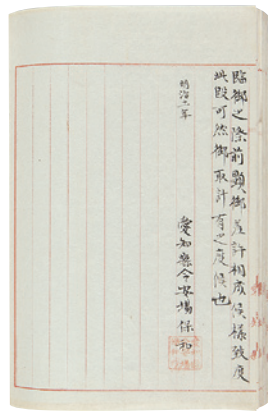 臨御之際前顕御差許相成候様致度
此段可然御取計有之度候也
明治二年
愛知縣令安場保和